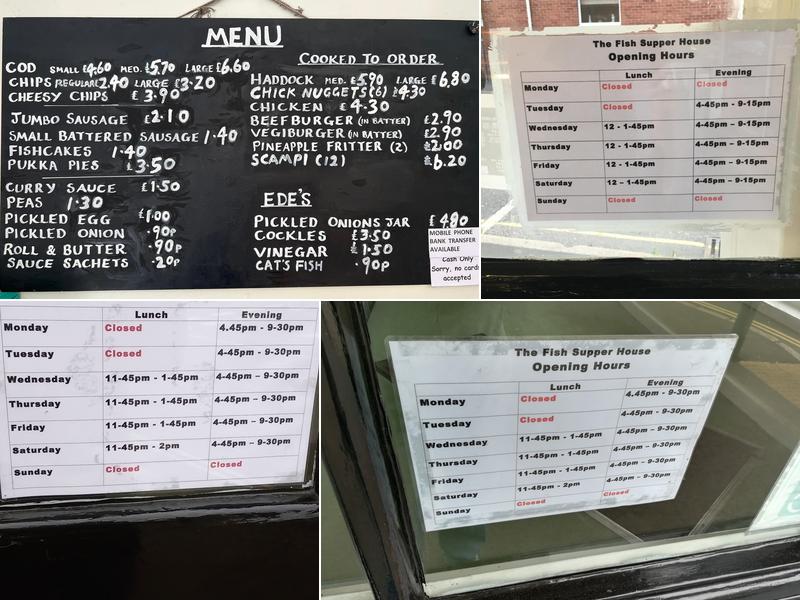 MENU
COD SMALL £4.60 MED. £5.70 LARGE £6.60
CHIPS REGULAR £2.40 LARGE £3.20
CHEESY CHIPS £3.90
JUMBO SAUSAGE £2.10
SMALL BATTERED SAUSAGE 1.40
FISHCAKES 1.40
PUKKA PIES £3.50
CURRY SAUCE £1.50
PEAS 1.30
PICKLED EGG £1.00
PICKLED ONION .90p
ROLL & BUTTER .90p
SAUCE SACHETS .20p
COOKED TO ORDER
HADDOCK MED. £5.90 LARGE £6.80
CHICK NUGGETS (6) £4.30
CHICKEN £4.30
BEEFBURGER (IN BATTER) £2.90
VEGIBURGER (IN BATTER) £2.90
PINEAPPLE FRITTER (2) £2.00
SCAMPI (12) £6.20
EDE'S
PICKLED ONIONS JAR £4.90
COCKLES £3.50
VINEGAR £1.50
CAT'S FISH .90p
MOBILE PHONE
BANK TRANSFER
AVAILABLE
Cash Only
Sorry, no cards
accepted
The Fish Supper House
Opening Hours
Lunch Evening
Monday Closed Closed
Tuesday Closed 4-45pm - 9-15pm
Wednesday 12 - 1-45pm 4-45pm - 9-15pm
Thursday 12 - 1-45pm 4-45pm - 9-15pm
Friday 12 - 1-45pm 4-45pm - 9-15pm
Saturday 12 - 1-45pm 4-45pm - 9-15pm
Sunday Closed Closed
Lunch Evening
Monday Closed 4.45pm - 9-30pm
Tuesday Closed 4-45pm - 9-30pm
Wednesday 11-45pm - 1-45pm 4-45pm - 9-30pm
Thursday 11-45pm - 1-45pm 4-45pm - 9-30pm
Friday 11-45pm - 1-45pm 4-45pm - 9-30pm
Saturday 11-45pm - 2pm 4-45pm - 9-30pm
Sunday Closed Closed
The Fish Supper House
Opening Hours
Lunch Evening
Monday Closed 4.45pm - 9-30pm
Tuesday Closed 4-45pm - 9-30pm
Wednesday 11-45pm - 1-45pm 4-45pm - 9-30pm
Thursday 11-45pm - 1-45pm 4-45pm - 9-30pm
Friday 11-45pm - 1-45pm 4-45pm - 9-30pm
Saturday 11-45pm - 2pm 4-45pm - 9-30pm
Sunday Closed Closed